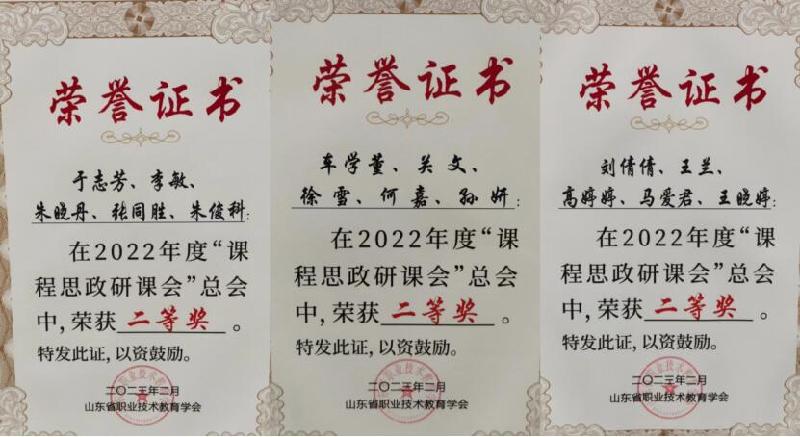 荣誉证书
于志芳、李敏、
朱晓丹、张同胜、朱俊科:
在2022年度“课
程思政研课会”总会
中,荣获二等奖。
特发此证,以资鼓励。
二〇二三年二月
山东省职业技术教育学会
荣誉证书
车学董、关文、
徐雪、何嘉、孙妍:
在2022年度“课
程思政研课会”总会
中,荣获二等奖。
特发此证,以资鼓励。
二〇二三年二月
山东省职业技术教育学会
荣誉证书
刘倩倩、王兰、
高婷婷、马爱君、王晓婷:
在2022年度“课
程思政研课会”总会
中,荣获二等奖。
特发此证,以资鼓励。
二〇二三年二月
山东省职业技术教育学会